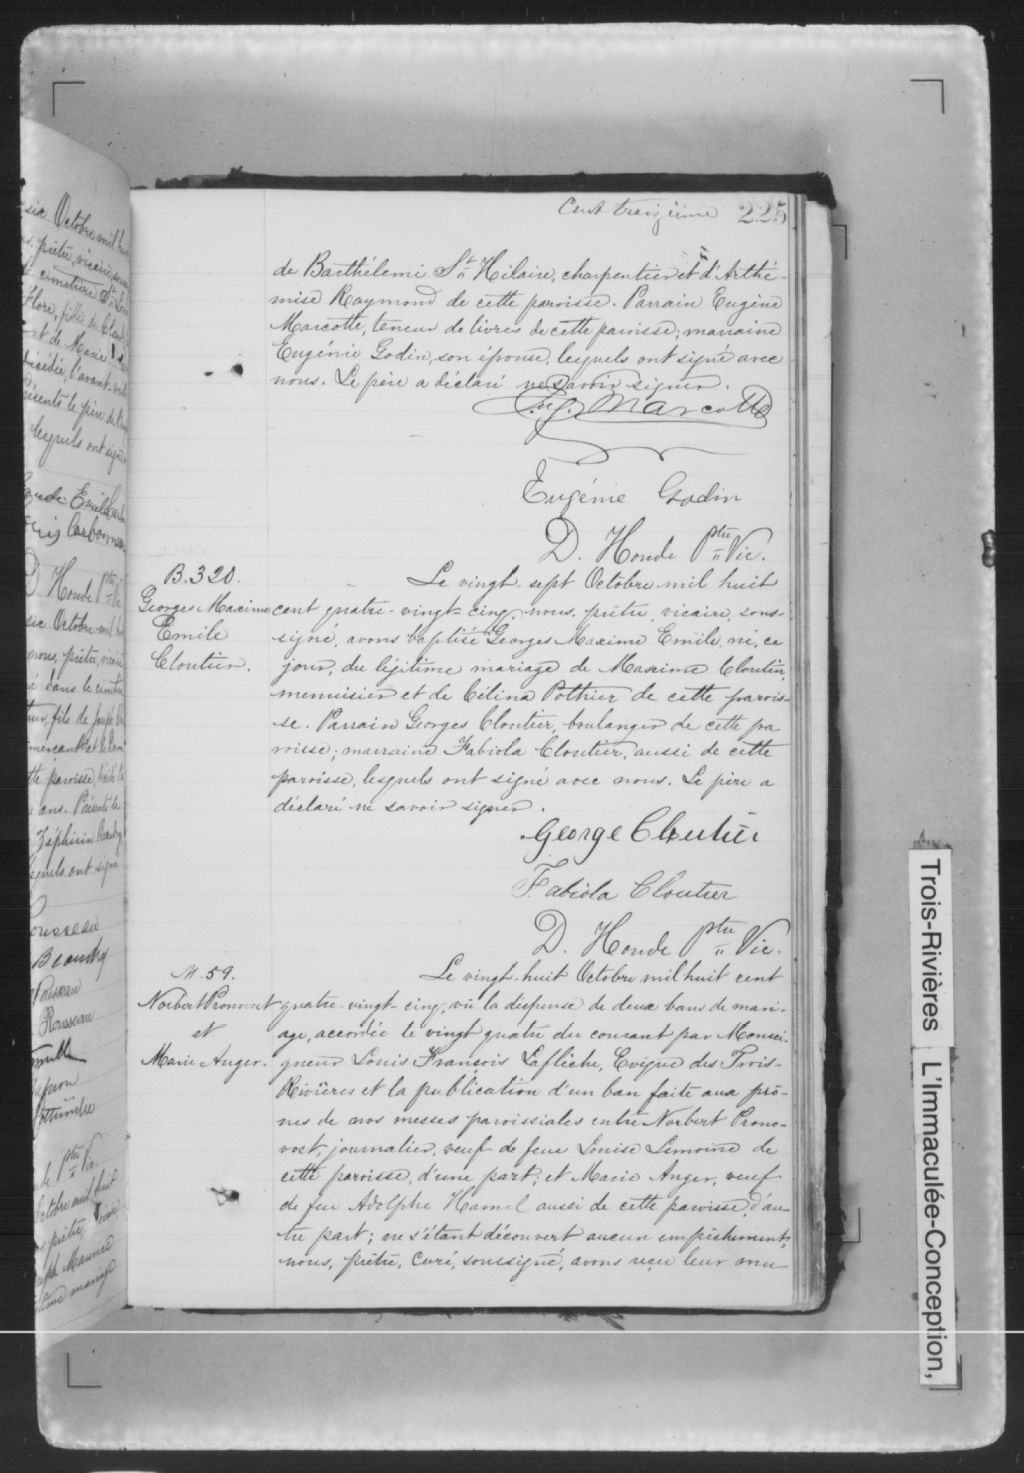 Cent treizième 225
de Barthélemi St Hilaire, charpentier et d'Arthé-
mise Raymond de cette paroisse. Parrain Eugène
Marcotte, teneur de livres de cette paroisse; marraine
Eugénie Godin, son épouse, lesquels ont signé avec
nous. Le père a déclaré ne savoir signer.
Eug. Marcotte
Eugénie Godin
D. Houde Ptre Vic.
B. 320.
Georges Maxime
Emile
Cloutier.
Le vingt-sept Octobre mil huit
cent quatre-vingt-cinq, nous, prêtre, vicaire, sous-
signé, avons baptisé Georges Maxime Emile, né, ce
jour, du légitime mariage de Maxime Cloutier,
menuisier et de Célina Pothier de cette parois-
se. Parrain Georges Cloutier, boulanger de cette pa
roisse; marraine Fabiola Cloutier, aussi de cette
paroisse, lesquels ont signé avec nous. Le père a
déclaré ne savoir signer.
George Cloutier
Fabiola Cloutier
D. Houde Ptre Vic.
M. 59.
Norbert Pronovost
et
Marie Anger.
Le vingt-huit Octobre mil huit cent
quatre-vingt-cinq, vu la dispense de deux bans de mari-
age, accordée le vingt quatre du courant par Monsei-
gneur Louis François Laflèche, Evêque des Trois-
Rivières et la publication d'un ban faite aux prô-
nes de nos messes paroissiales entre Norbert Prono-
vost, journalier, veuf de feue Louise Lemoine de
cette paroisse, d'une part; et Marie Anger, veuf
de feu Adolphe Hamel aussi de cette paroisse, d'au-
tre part; ne s'étant découvert aucun empêchement,
nous, prêtre, curé, soussigné, avons reçu leur mu
Trois-Rivières L'Immaculée-Conception,